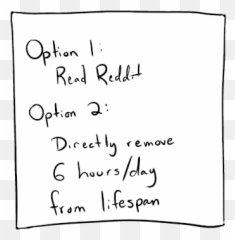 Option 1:
Read Reddit
Option 2:
Directly remove
6 hours/day
from lifespan